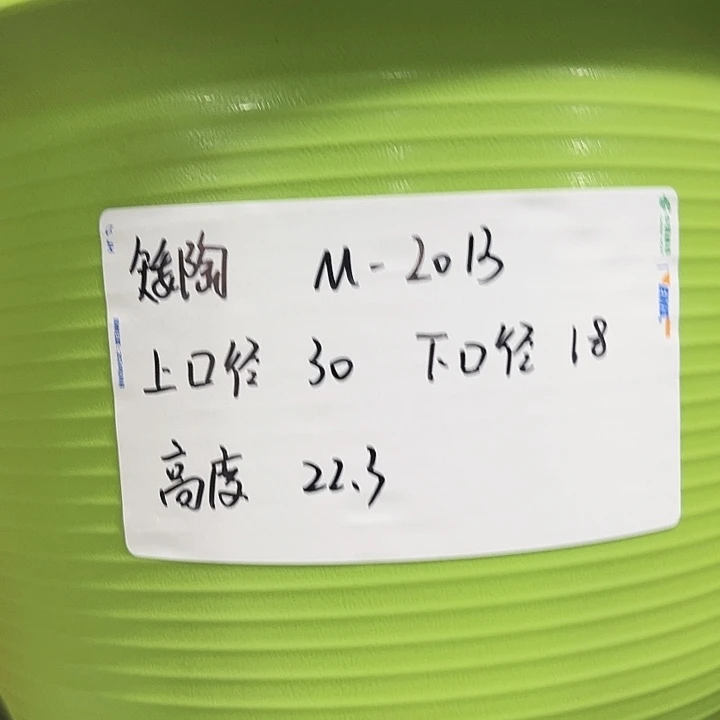 矮陶 M-2013
上口径 30 下口径 18
高度 22.3